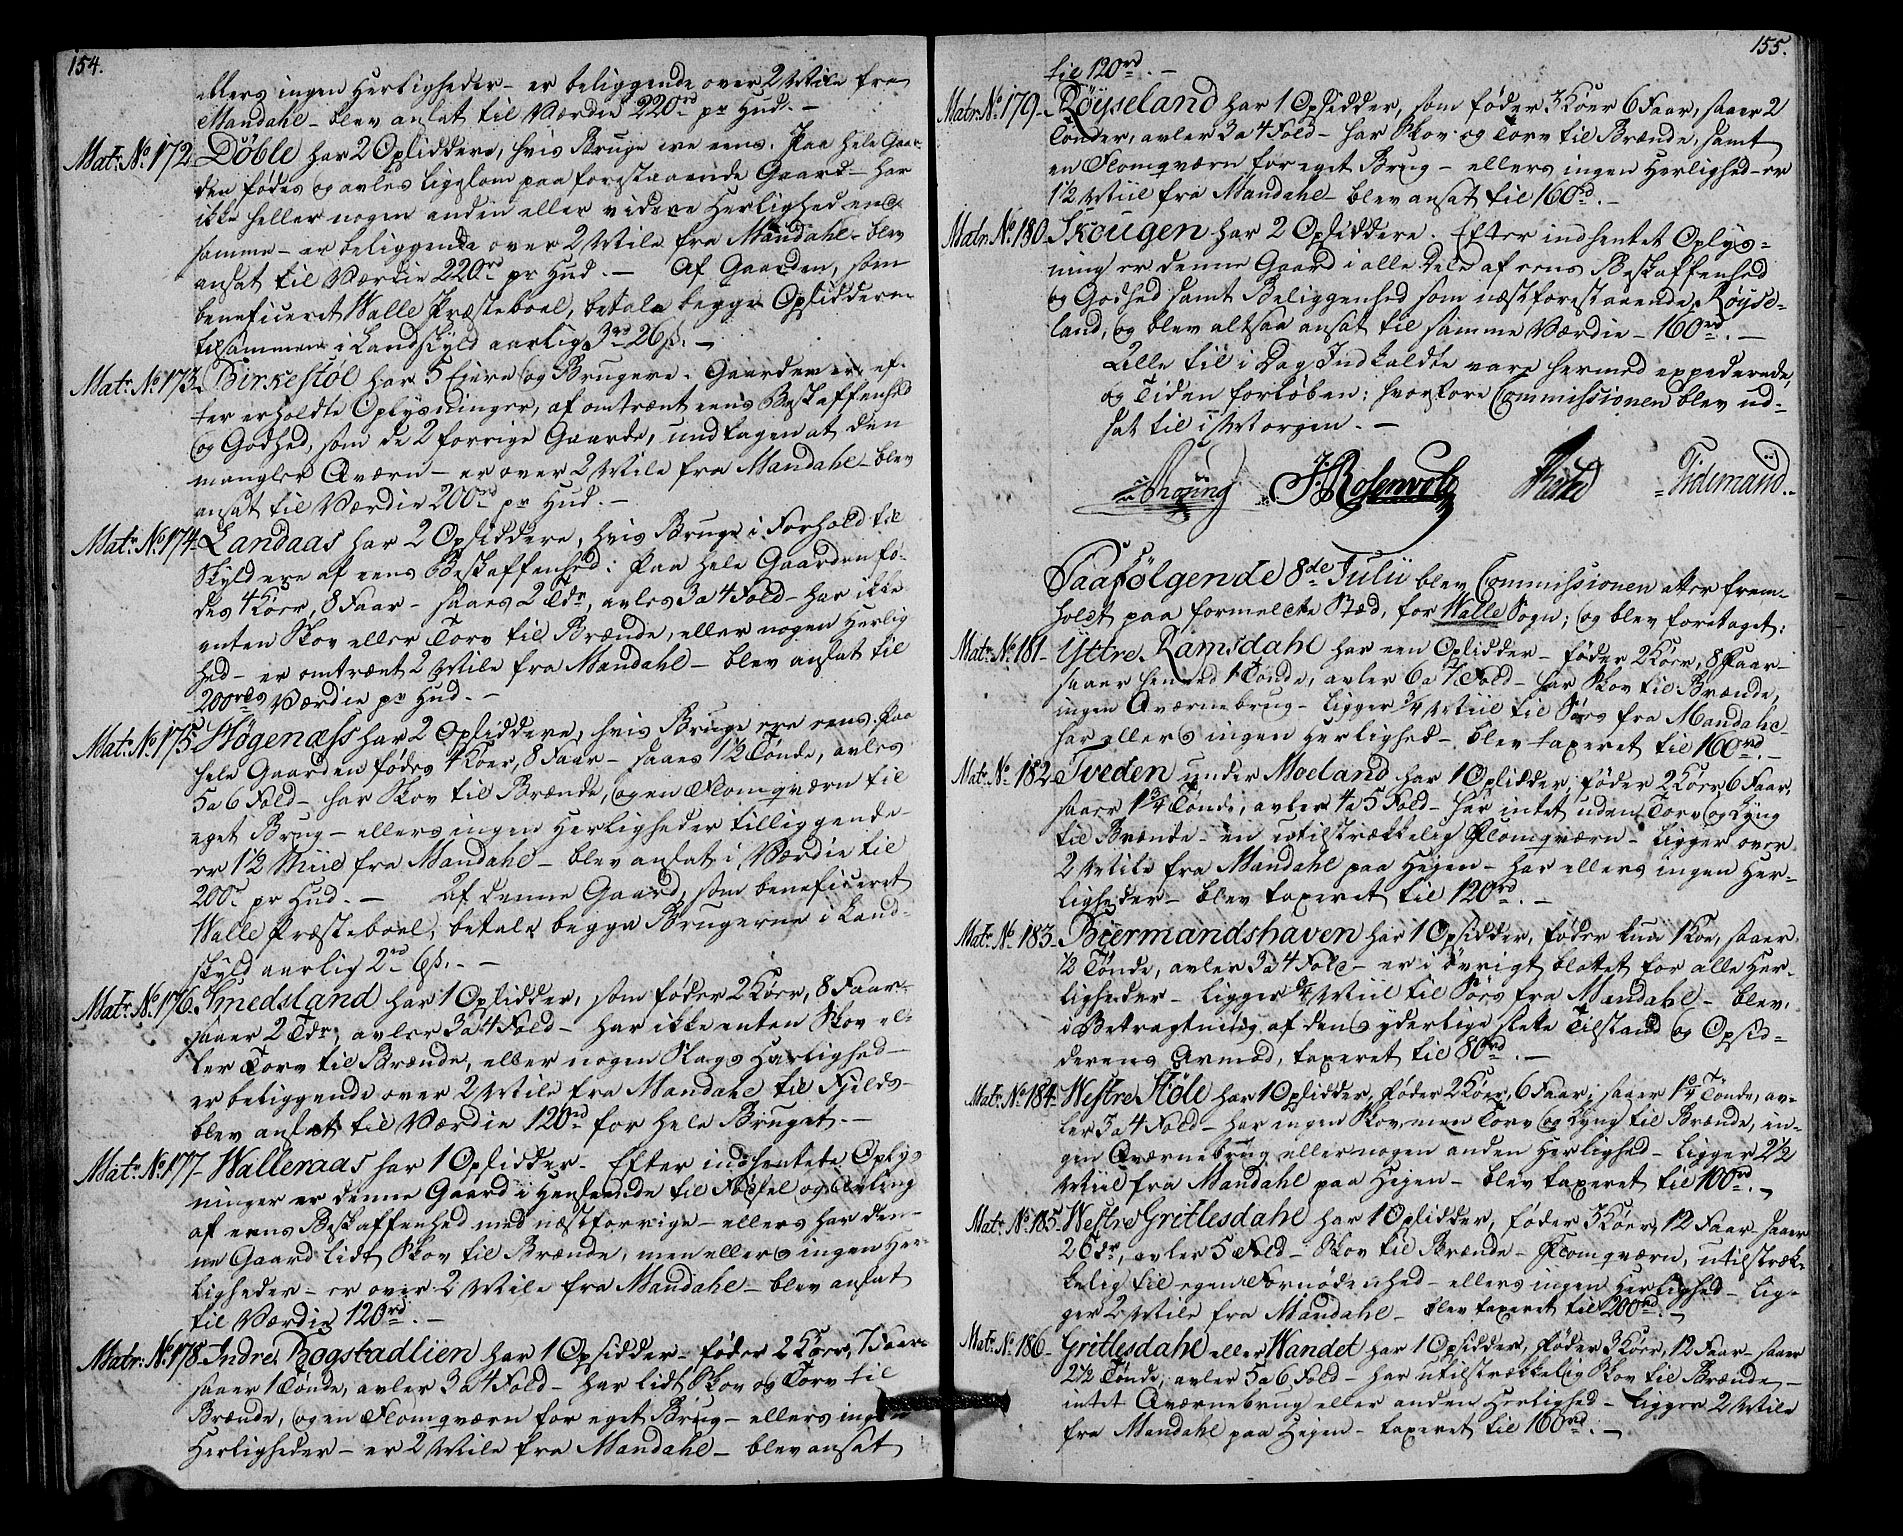 154.
ellers ingen Herligheder – er beliggende over 2 Mile fra
Mandahl – blev ansat til Værdie 220rd pr Hud. –
Matr. No 172. Döble har 2 Opsiddere, hvis Bruge ere eens. Paa hele Gaar-
den fødes og avles ligesom paa forestaaende Gaard – har
ikke heller nogen anden eller videre Herlighed end
samme – er beliggende over 2 Mile fra Mandahl – blev
ansat til Værdie 220rd pr Hud. – Af Gaarden, som
beneficeret Walle Præsteboel, betale begge Opsidderne
tilsammen i Landskyld aarlig 3rd 26ß. –
Matr. No 173. Birkestöl har 5 Eiere og Brugere. Gaarden er ef-
ter erholdte Oplysninger, af omtrent eens Beskaffenhed
og Godhed, som de 2 forrige Gaarde, undtagen at den
mangler Qværn – er over 2 Mile fra Mandahl – blev
ansat til Værdie 200rd pr Hud. –
Matr. No 174. Landaas har 2 Opsiddere, hvis Bruge i Forhold til
Skyld ere af eens Beskaffenhed: Paa hele Gaarden fö-
des 4 Köer, 8 Faar – saaes 2 Tdr, avles 3 a 4 Fold – har ikke
enten Skov eller Torv til Brænde, eller nogen Herlig
hed – er omtrent 2 Mile fra Mandahl – blev ansat til
200rdls Værdie pr Hud. –
Matr. No 175. Högenæss har 2 Opsiddere, hvis Bruge ere eens. Paa
hele Gaarden födes 4 Köer, 8 Faar – saaes 1½ Tönde, avles
5 a 6 Fold – har Skov til Brænde, og en Flomqværn til
eget Brug – ellers ingen Herligheder tilliggende –
er 1½ Miil fra Mandahl – blev ansat i Værdie til
200rd pr Hud. – Af denne Gaard, som beneficeret
Walle Præsteboel, betale begge Brugerne i Land-
skyld aarlig 2rd 6ß. –
Matr. No 176. Smedsland har 1 Opsidder, som föder 2 Köer, 8 Faar –
saaer 2 Tdr, avler 3 a 4 Fold – har ikke enten Skov el-
ler Torv til Brænde, eller nogen Slags Herlighed –
er beliggende over 2 Mile fra Mandahl til Fjelds –
blev ansat til Værdie 120rd for hele Bruget. –
Matr. No 177. Walleraas har 1 Opsidder. Efter indhentede Oplys
ninger er denne Gaard i Henseende til Födsel og Avling
af eens Beskaffenhed med næstforrige – ellers har den-
ne Gaard lidt Skov til Brænde, men ellers ingen Her-
ligheder – er over 2 Mile fra Mandahl – blev ansat
til Værdie 120rd. –
Matr. No 178. Indre Rogstadlien har 1 Opsidder – föder 2 Köer, 7 Faar –
saaer 1 Tönde, avler 3 a 4 Fold – har lidt Skov og Torv til
Brænde, og en Flomqværn for eget Brug – ellers ingen
Herligheder – er 2 Mile fra Mandahl – blev ansat
155.
til 120rd. –
Matr. No 179. Röyseland har 1 Opsidder, som föder 3 Köer 6 Faar, saaer 2
Tönder, avler 3 a 4 Fold – har Skov og Torv til Brænde, samt
en Flomqværn for eget Brug – ellers ingen Herlighed – er
1½ Miil fra Mandahl – blev ansat til 160rd. –
Matr. No 180. Skougen har 2 Opsiddere. Efter indhentet Oplys-
ning er denne Gaard i alle Dele af eens Beskaffenhed
og Godhed samt Beliggenhed som næstforestaaende Röyse-
land, og blev altsaa ansat til samme Værdie – 160rd. –
Alle til i Dag Indkaldte vare hermed expederede,
og Tiden forløben; hvorfore Commissionen blev ud-
sat til i Morgen. –
J: Rosenvold Tidemand.
Paafølgende 8de Julii blev Commissionen atter frem-
holdt paa formeldte Stæd, for Walle Sogn; og blev foretaget:
Matr. No 181. Yttre Ramsdahl har een Opsidder – föder 2 Köer, 8 Faar –
saaer henved 1 Tönde, avler 6 a 7 Fold – har Skov til Brænde,
ingen Qværnebrug – ligger ¾ Miil til Söes fra Mandahl –
har ellers ingen Herlighed – blev taxeret til 160rd. –
Matr. No 182. Tveden under Moeland har 1 Opsidder, föder 2 Köer 6 Faar,
saaer 1¾ Tönde, avler 4 a 5 Fold – har intet uden Torv og Lyng
til Brænde – en utilstrækkelig Flomqværn – ligger over
2 Mile fra Mandahl paa Hejen – har ellers ingen Her-
ligheder – blev taxeret til 120rd. –
Matr. No 183. Biermandshaven har 1 Opsidder, föder kun 1 Koe, saaer
½ Tönde, avler 3 a 4 Fold – er i övrigt blottet for alle Her-
ligheder – ligger ¾ Miil til Söes fra Mandahl – blev,
i Betragtning af dens yderlige slette Tilstand og Opsid-
derens Armod, taxeret til 80rd. –
Matr. No 184. Westre Stöle har 1 Opsidder, föder 2 Köer, 6 Faar, saaer 1¾ Tönde, av-
ler 3 a 4 Fold – har ingen Skov, men Torv og Lyng til Brænde, in-
gen Qværnebrug eller nogen anden Herlighed – ligger 2½
Miil fra Mandahl paa Hejen – blev taxeret til 100rd. –
Matr. No 185. Westre Gritlesdahl har 1 Opsidder, föder 3 Köer, 12 Faar – saaer
2 Tdr, avler 5 Fold – Skov til Brænde – Flomqværn, utilstræk-
kelig til egen Fornödenhed – ellers ingen Herlighed – lig-
ger 2 Mile fra Mandahl – blev taxeret til 200rd. –
Matr. No 186. Gritlesdahl eller Wandet har 1 Opsidder, föder 3 Köer, 12 Faar – saaer
2½ Tönde, avler 5 a 6 Fold – har utilstrækkelig Skov til Brænde –
intet Qværnebrug eller anden Herlighed – ligger 2 Mile
fra Mandahl paa Hejen – taxeret til 160rd. –